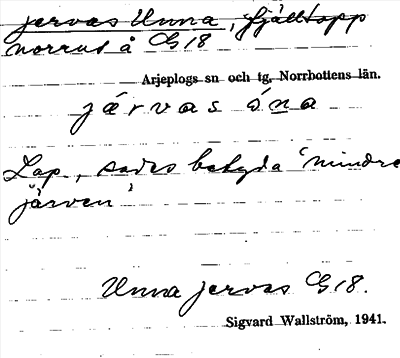 jervas Unna, fjälltopp
norrut å G18
Arjeplogs sn och tg, Norrbottens län.
járvas óna
Lap., sades betyda 'mindre
järven'
Unna jervas G18.
Sigvard Wallström, 1941.